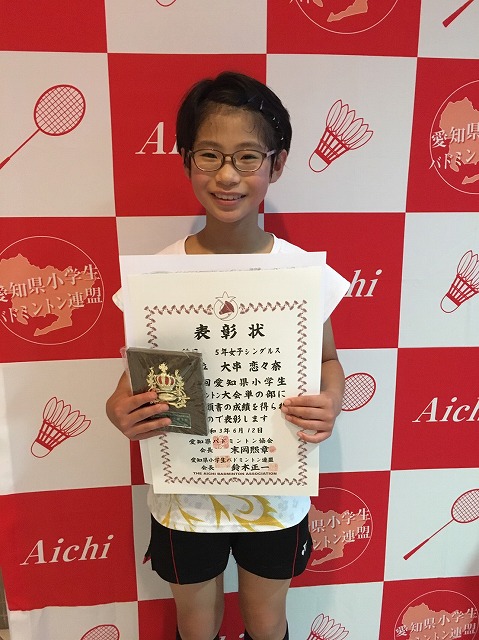 Aichi
Aichi
愛知県小学生
バドミントン連盟
愛知県小学生
バドミントン連盟
Aichi
表彰状
5年女子シングルス
位 大串 恋々奈
回愛知県小学生
ントン大会単の部に
頭書の成績を得られ
ので表彰します
和3年6月12日
愛知県バドミントン協会
会長 末岡熙章
愛知県小学生バドミントン連盟
会長 鈴木正一
THE AICHI BADMINTON ASSOCIATION
Aichi
Aichi
愛知県小学生
バドミントン連盟